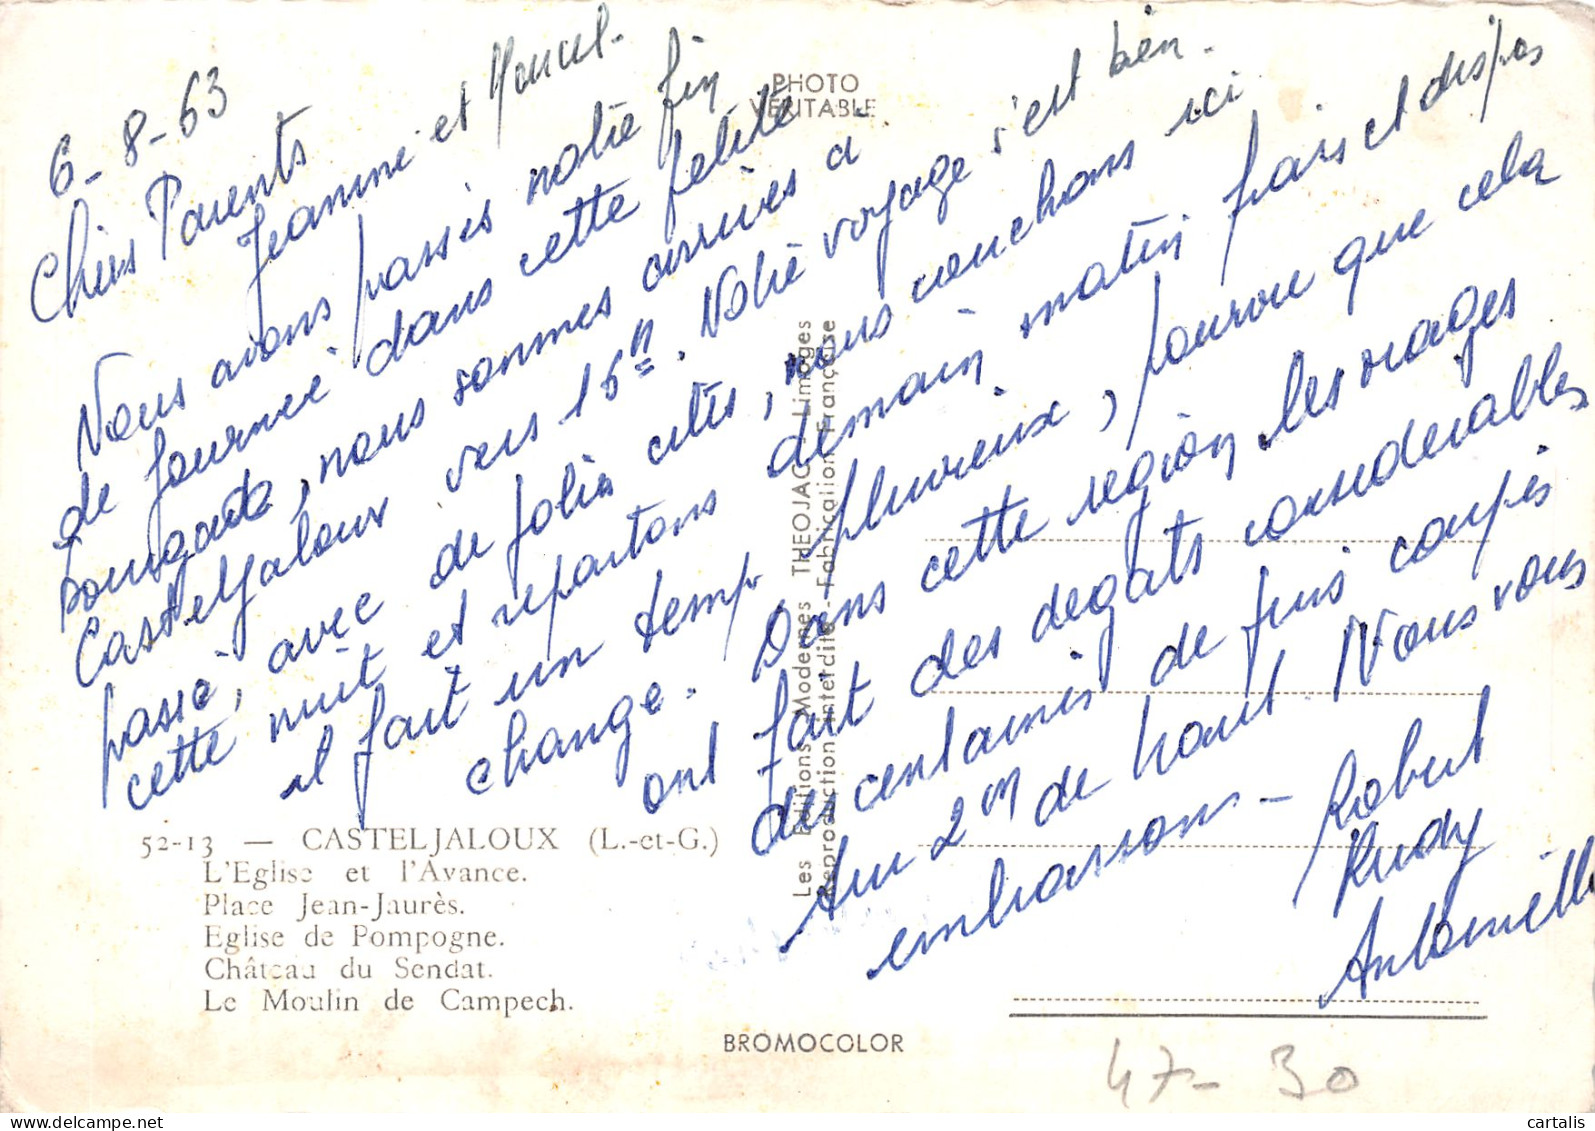 6-8-63
Chers Parents
Jeannine et Marcel.
Nous avons passés notre fin
de journée dans cette petite
bourgade, nous sommes arrivés a
Casteljaloux vers 15h. Notre voyage s'est bien
passé, avec de jolis cotés, nous couchons ici
cette nuit et repartons demain matin frais et dispos
il fait un temp pluvieux, pourvu que cela
change. Dans cette region les orages
ont fait des degats considerables
des centaines de pins coupés
sur 2m de haut. Nous vous
embrassons - Robert
Rudy
Antoinette
PHOTO
VÉRITABLE
Les Editions Modernes THEOJAC Limoges
Reproduction interdite - Fabrication Française
52-13 — CASTELJALOUX (L.-et-G.)
L'Eglise et l'Avance.
Place Jean-Jaurès.
Eglise de Pompogne.
Château du Sendat.
Le Moulin de Campech.
BROMOCOLOR
47-30
cartalis on www.delcampe.net